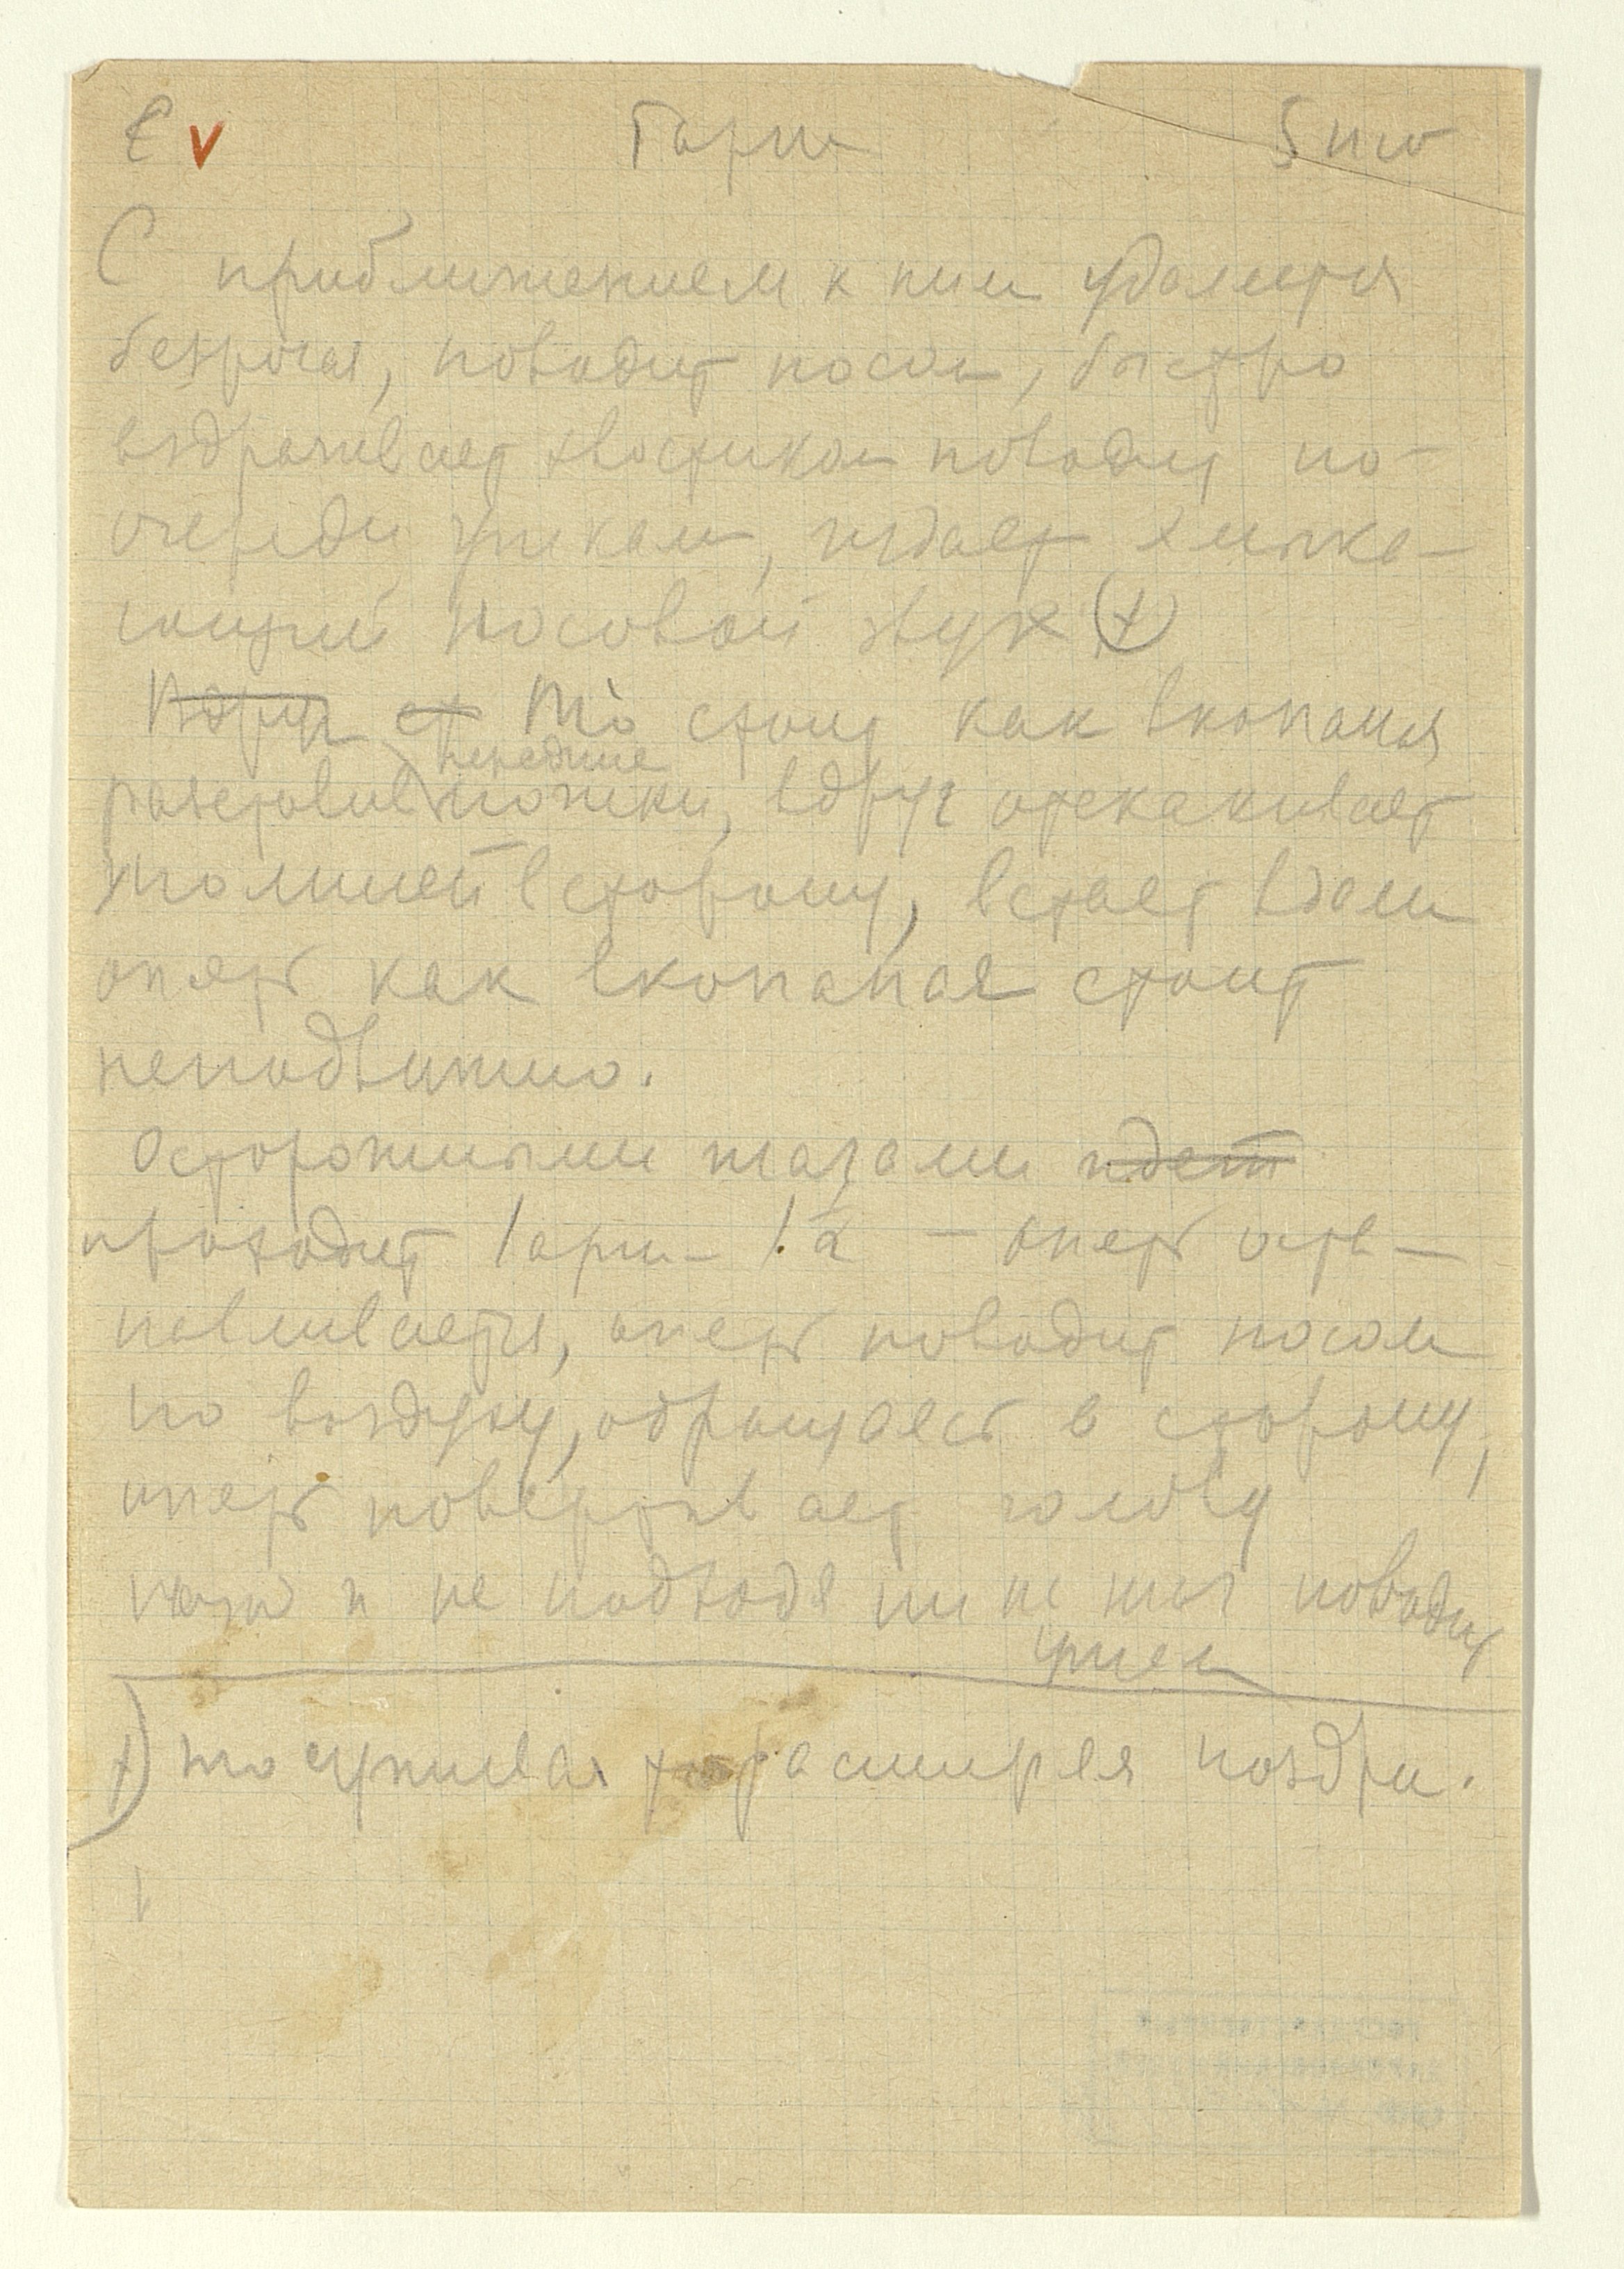 V Гарш 5 июл
С приближением к ним удаляется
безрогая, поводит носом, быстро
вздрагивает хвостиком поводит по-
очереди ушками, издает хмыка-
ющий носовой звук (+)
То стоит как вкопаная
передние
расставив ножки, вдруг отскакивает
в сторону, встает вдали
опять как вкопаная стоит
неподвижно.
Осторожными шагами идет
проходит 1 арш – 1.2 – опять оста-
навливается, опять поводит носом
по воздуху, обращаясь в сторону,
опять повертывает голову
и не подходя ни на шаг поводит
ушами
+) то суживая то расширяя ноздри.